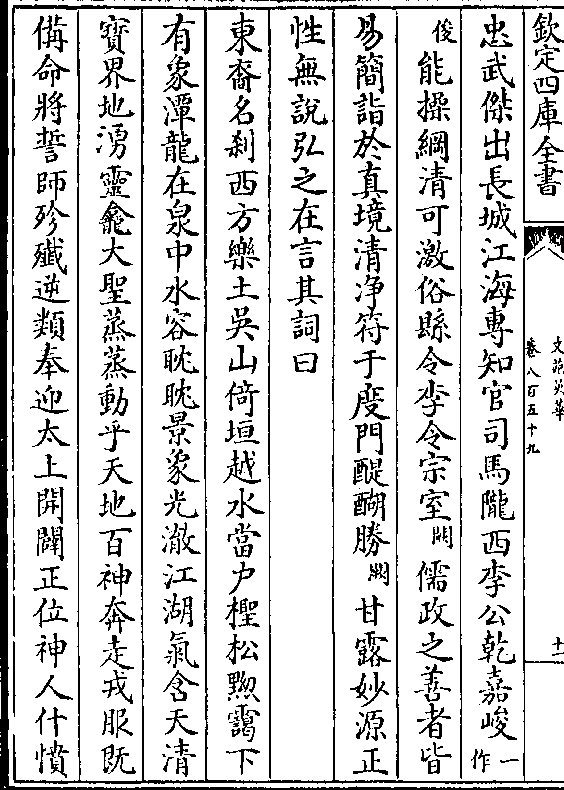 欽定四庫全書
文苑英華
卷八百五十九
十一
忠武傑出長城江海專知官司馬隴西李公乾嘉峻一作
俊能操綱清可激俗縣令李令宗室闕儒政之善者皆
易簡詣於真境清净符于度門醍醐勝闕甘露妙源正
性無說弘之在言其詞曰
東裔名刹西方樂土吳山倚垣越水當户檉松黰靄下
有象潭龍在泉中水容眈眈景象光澈江湖氣含天清
寳界地湧靈龕大聖蒸蒸動乎天地百神奔走戎服既
備命將誓師殄殲逆類奉迎太上開闢正位神人什憤